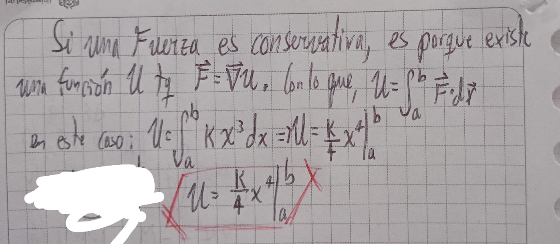 Si una Fuerza es conservativa, es porque existe
una función U tq F⃗ = ∇⃗u. Con lo que, U = ∫_a^b F⃗·dr⃗
en este caso: U = ∫_a^b K x³ dx ⇒ U = K/4 x⁴ |_a^b
U = K/4 x⁴ |_a^b